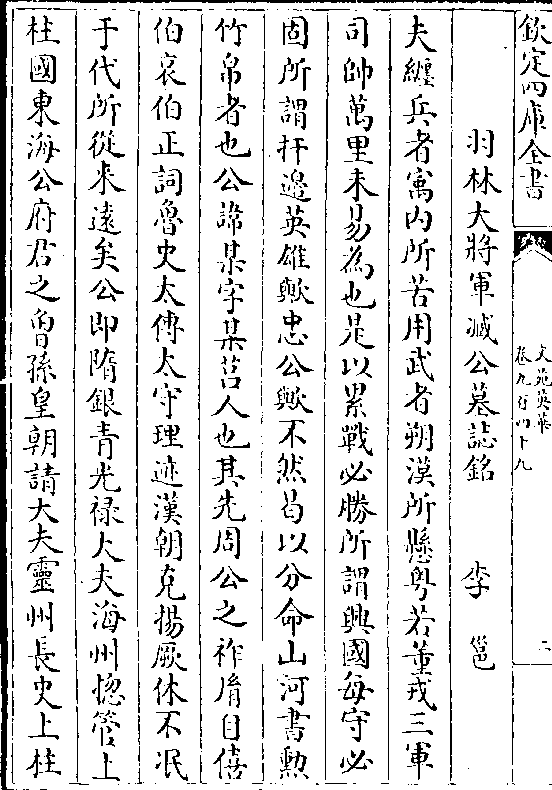 欽定四庫全書
文苑英華
卷九百四十九
二
羽林大將軍臧公墓誌銘　李邕
夫纏兵者寓内所苦用武者朔漠所懸粤若董戎三軍
司帥萬里未易為也是以累戰必勝所謂興國每守必
固所謂扞邉英雄歟忠公歟不然曷以分命山河書勲
竹帛者也公諱某字某莒人也其先周公之祚膺自僖
伯哀伯正詞魯史太傅太守理迹漢朝克揚厥休不泯
于代所從来逺矣公即隋銀青光禄大夫海州揔管上
柱國東海公府君之曾孫皇朝請大夫靈州長史上柱